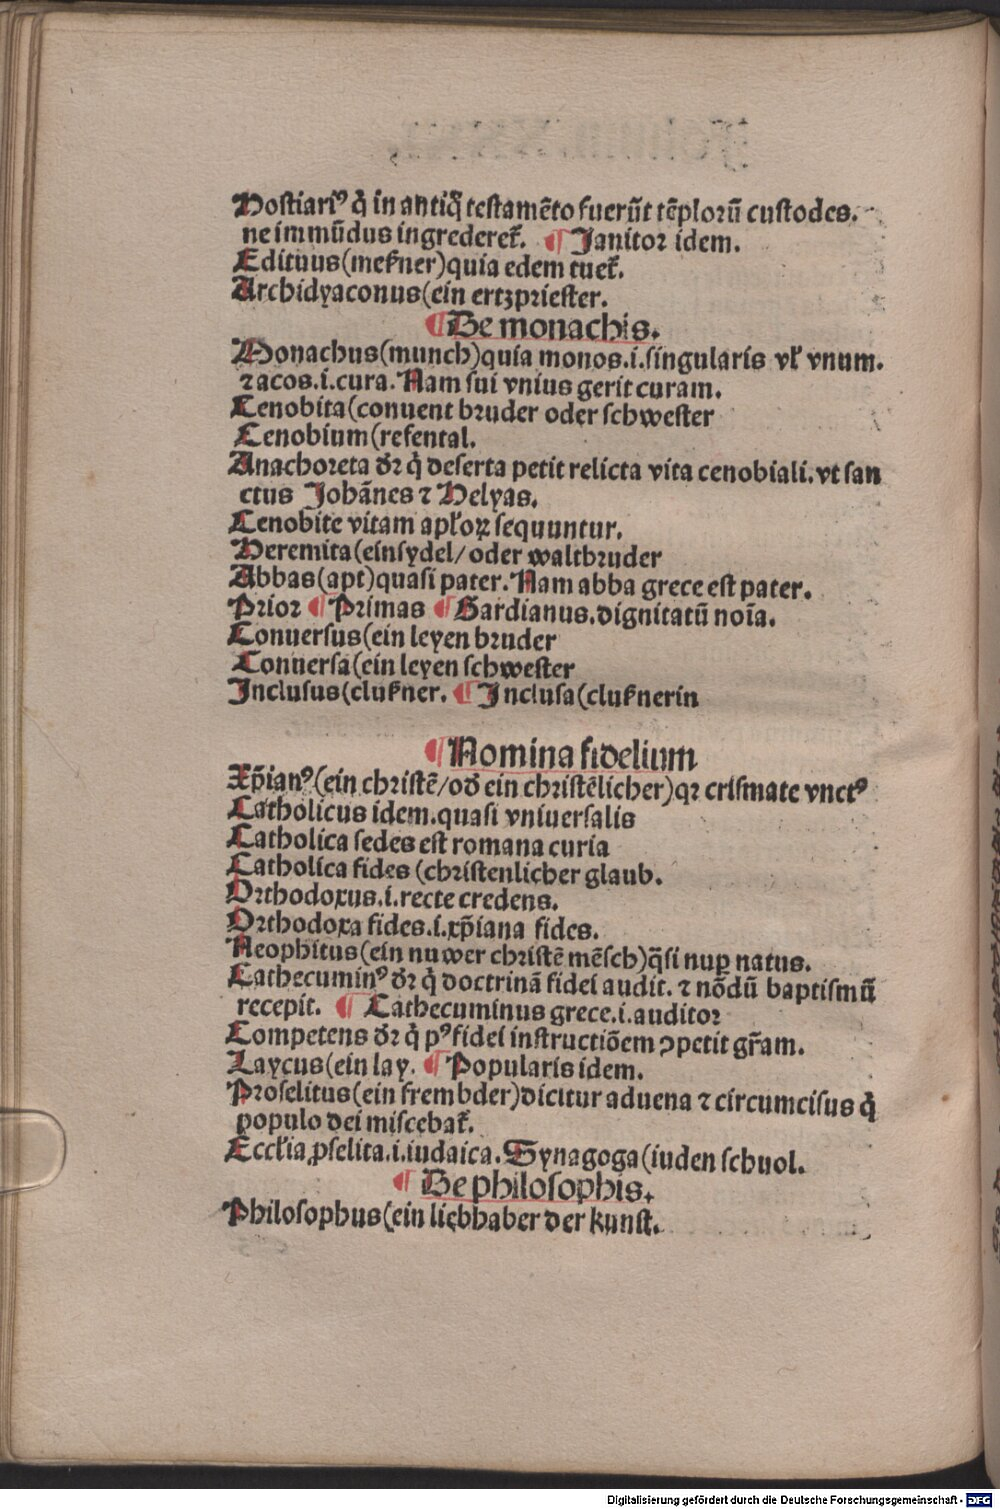 Hostiariꝰ q̇ in antiq̃ testamẽto fuerũt tẽplorũ custodes.
ne immũdus ingrederet᷑. ¶ Janitor idem.
Edituus(meßner)quia edem tuet᷑.
Archidyaconus(ein ertzpriester.
¶ De monachis.
Monachus(munch)quia monos.i.singularis vl' vnum.
⁊ acos.i.cura. Nam sui vnius gerit curam.
Cenobita(conuent bruder oder schwester
Cenobium(refental.
Anachoreta dr̃ q̇ deserta petit relicta vita cenobiali.vt san
ctus Johãnes ⁊ Helyas.
Cenobite vitam apl'oꝝ sequuntur.
Heremita(einsydel/oder waltbruder
Abbas(apt)quasi pater. Nam abba grece est pater.
Prior ¶ Primas ¶ Gardianus.dignitatũ noĩa.
Conuersus(ein leyen bruder
Conuersa(ein leyen schwester
Inclusus(clußner. ¶ Inclusa(clußnerin
¶ Nomina fidelium
Xp̃ianꝰ(ein christẽ/od̓ ein christẽlicher)qꝛ crismate vnctꝰ
Catholicus idem.quasi vniuersalis
Catholica sedes est romana curia
Catholica fides (christenlicher glaub.
Orthodoxus.i.recte credens.
Orthodoxa fides.i.xp̃iana fides.
Neophitus(ein nuwer christẽ mẽsch)q̃si nuꝑ natus.
Cathecuminꝰ dr̃ q̇ doctrinã fidei audit. ⁊ nõdũ baptismũ
recepit. ¶ Cathecuminus grece.i.auditor
Competens dr̃ q̇ pꝰ fidei instructiõem ꝯpetit gr̃am.
Laycus(ein lay. ¶ Popularis idem.
Proselitus(ein frembder)dicitur aduena ⁊ circumcisus q̇
populo dei miscebat᷑.
Eccl'ia ꝓselita.i.iudaica. Synagoga(iuden schuol.
¶ De philosophis.
Philosophus(ein liebhaber der kunst.
Digitalisierung gefördert durch die Deutsche Forschungsgemeinschaft - DFG